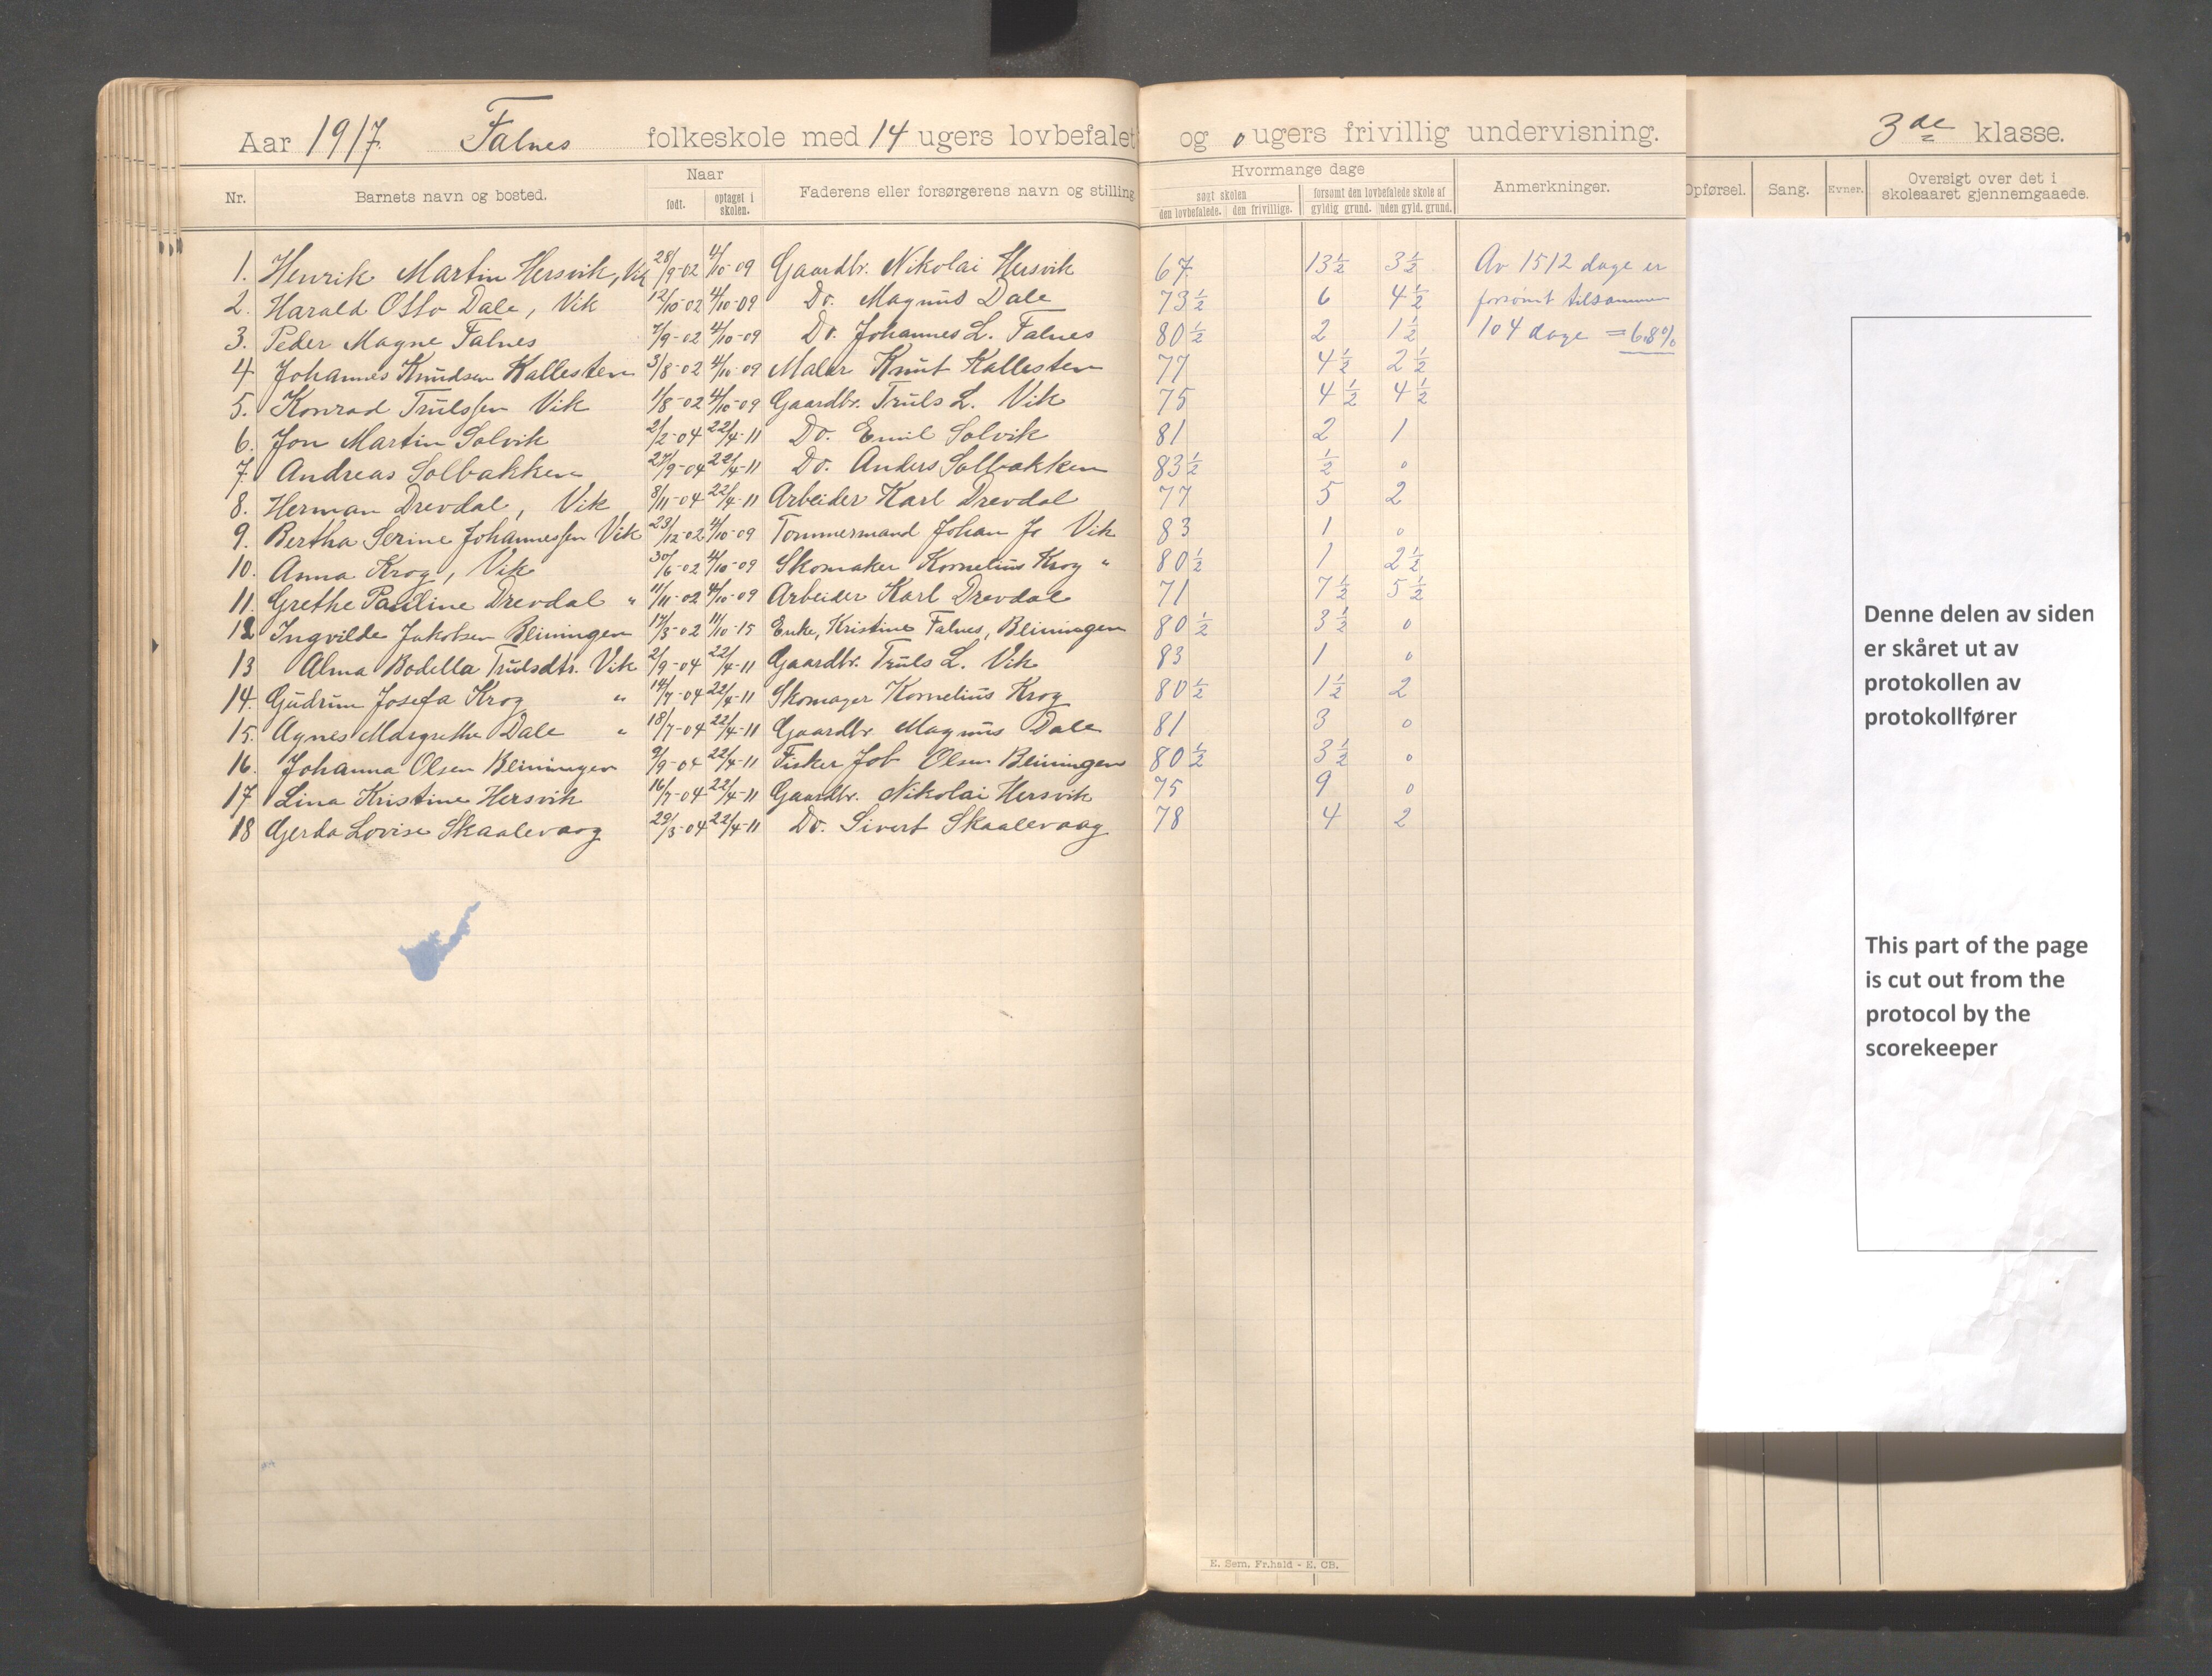 Aar 1917. Falnes folkeskole med 14 ugers lovbefalet og 0 ugers frivillig undervisning. 3de klasse.
Nr. Barnets navn og bosted. Naar født. optaget i skolen. Faderens eller forsørgerens navn og stilling Hvormange dage søgt skolen den lovbefalede. den frivillige. forsømt den lovbefalede skole af gyldig grund. uden gyld. grund. Anmerkninger. Opførsel. Sang. Evner. Oversigt over det i skoleaaret gjennemgaaede.
1. Henrik Martin Hersvik, Vik 28/9-02 4/10-09 Gaardbr. Nikolai Hersvik 67 13 1/2 3 1/2 Av 1512 dage er
2. Harald Otto Dale, Vik 12/10-02 4/10-09 Do. Magnus Dale 73 1/2 6 4 1/2 forsømt tilsammen
3. Peder Magne Falnes 7/9-02 4/10-09 Do. Johannes L. Falnes 80 1/2 2 1 1/2 104 dage = 6.8%
4 Johannes Knudsen Kallesten 3/8-02 4/10-09 Maler Knut Kallesten 77 4 1/2 2 1/2
5. Konrad Trulssen Vik 1/8-02 4/10-09 Gaardbr. Truls L. Vik 75 4 1/2 4 1/2
6. Jon Martin Solvik 2/2-04 22/4-11 Do. Emil Solvik 81 2 1
7. Andreas Solbakken 27/9-04 22/4-11 Do. Anders Solbakken 83 1/2 1/2 0
8. Herman Drevdal, Vik 8/11-04 22/4-11 Arbeider Karl Drevdal 77 5 2
9. Bertha Serine Johannessen Vik 23/12-02 4/10-09 Tømmermand Johan Js Vik 83 1 0
10. Anna Krog, Vik 30/6-02 4/10-09 Skomaker Kornelius Krog " 80 1/2 1 2 1/2
11. Grethe Pauline Drevdal " 11/11-02 4/10-09 Arbeider Karl Drevdal 71 7 1/2 5 1/2
12 Ingvilde Jakobsen Bleiningen 17/3-02 11/10-15 Enke, Kristine Falnes, Bleiningen 80 1/2 3 1/2 0
13 Alma Bodella Trulsdtr. Vik 2/9-04 22/4-11 Gaardbr. Truls L. Vik 83 1 0
14. Gudrun Josefa Krog " 14/7-04 22/4-11 Skomager Kornelius Krog 80 1/2 1 1/2 2
15. Agnes Margrethe Dale " 18/7-04 22/4-11 Gaardbr Magnus Dale 81 3 0
16. Johanna Olsen Bleiningen 9/9-04 22/4-11 Fisker Job Olsen Bleiningen 80 1/2 3 1/2 0
17 Lina Kristine Hersvik 16/7-04 22/4-11 Gaardbr. Nikolai Hersvik 75 9 0
18 Gerda Lovise Skaalevaag 29/3-04 22/4-11 Do. Sivert Skaalevaag 78 4 2
Denne delen av siden
er skåret ut av
protokollen av
protokollfører
This part of the page
is cut out from the
protocol by the
scorekeeper
E. Sem, Fr.hald - E. CB.